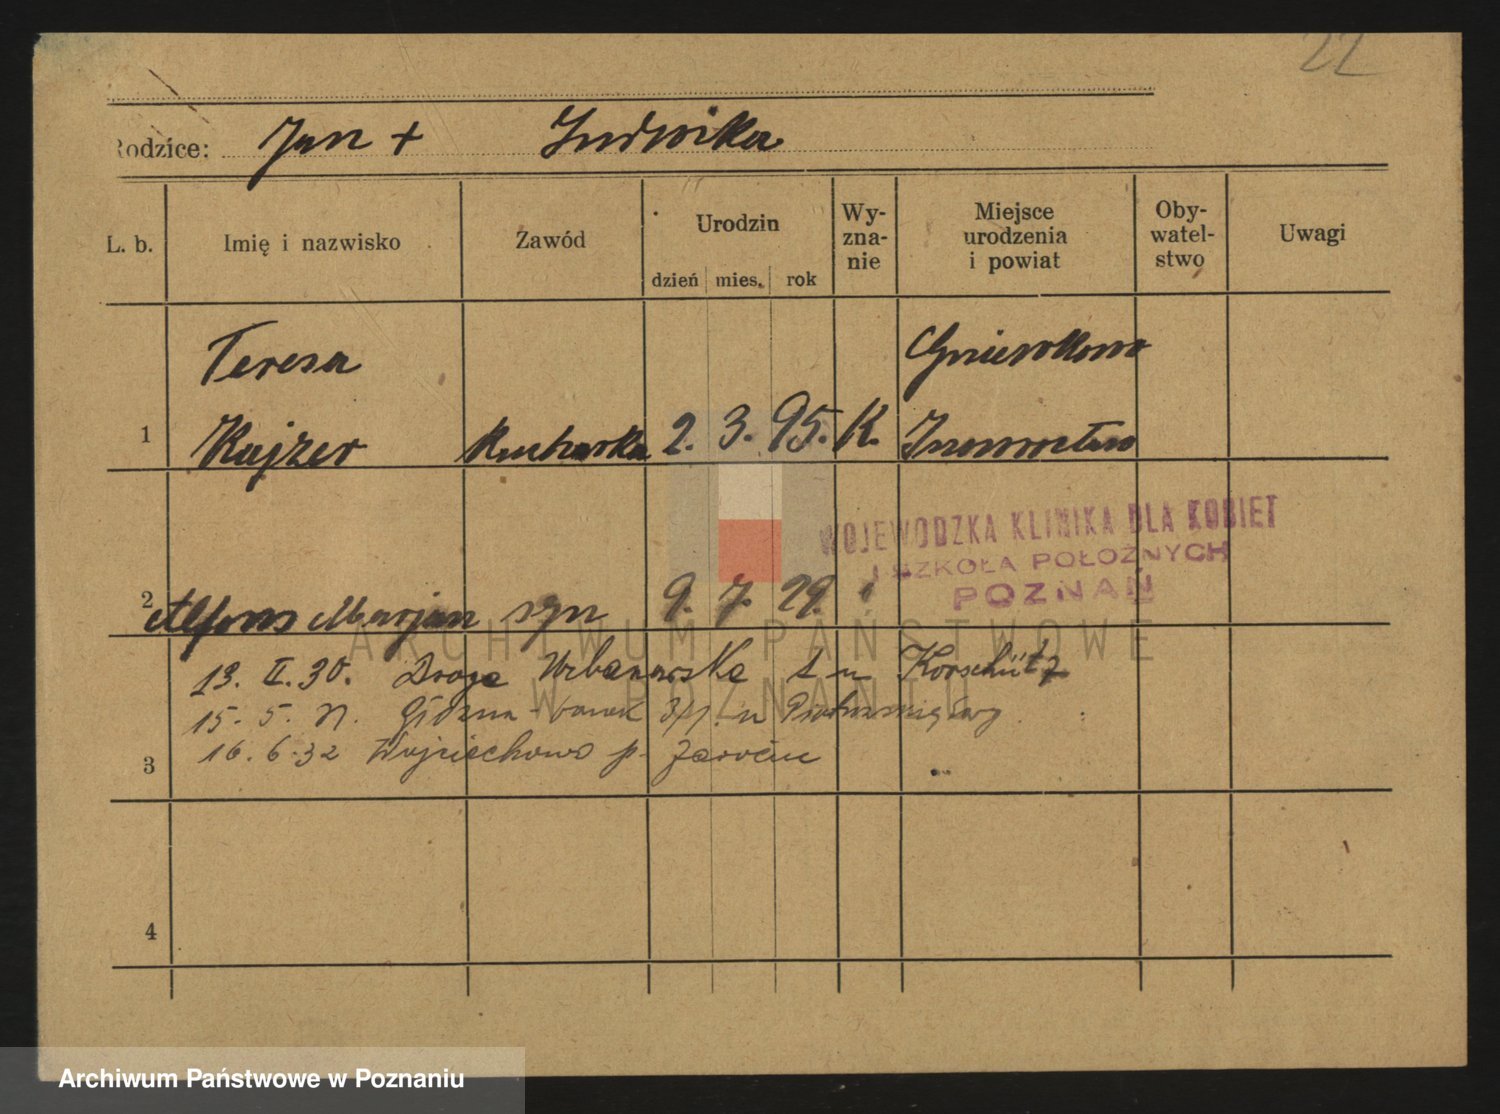 22
Rodzice: Jan + Ludwika
L. b. Imię i nazwisko Zawód Urodzin dzień mies. rok Wy-zna-nie Miejsce urodzenia i powiat Oby-watel-stwo Uwagi
Teresa Gniewkowo
1 Kajzer Kucharka 2. 3. 95. K. Inowrocław
WOJEWÓDZKA KLINIKA DLA KOBIET
I SZKOŁA POŁOŻNYCH
POZNAŃ
2 Alfons Marjan syn 9. 7. 29.
13. II. 30. Droga Urbanowska 1 u Korschütz
15. 5. 31. u
3 16. 6. 32 Wojciechowo p. Jarocin
4
ARCHIWUM PAŃSTWOWE
W POZNANIU
Archiwum Państwowe w Poznaniu